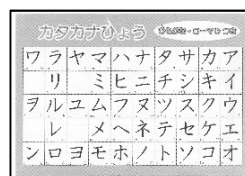 カタカナひょう
ワラヤマハナタサカア
リ ミヒニチシキイ
ヲルユムフヌツスクウ
レ メヘネテセケエ
ンロヨモホノトソコオ